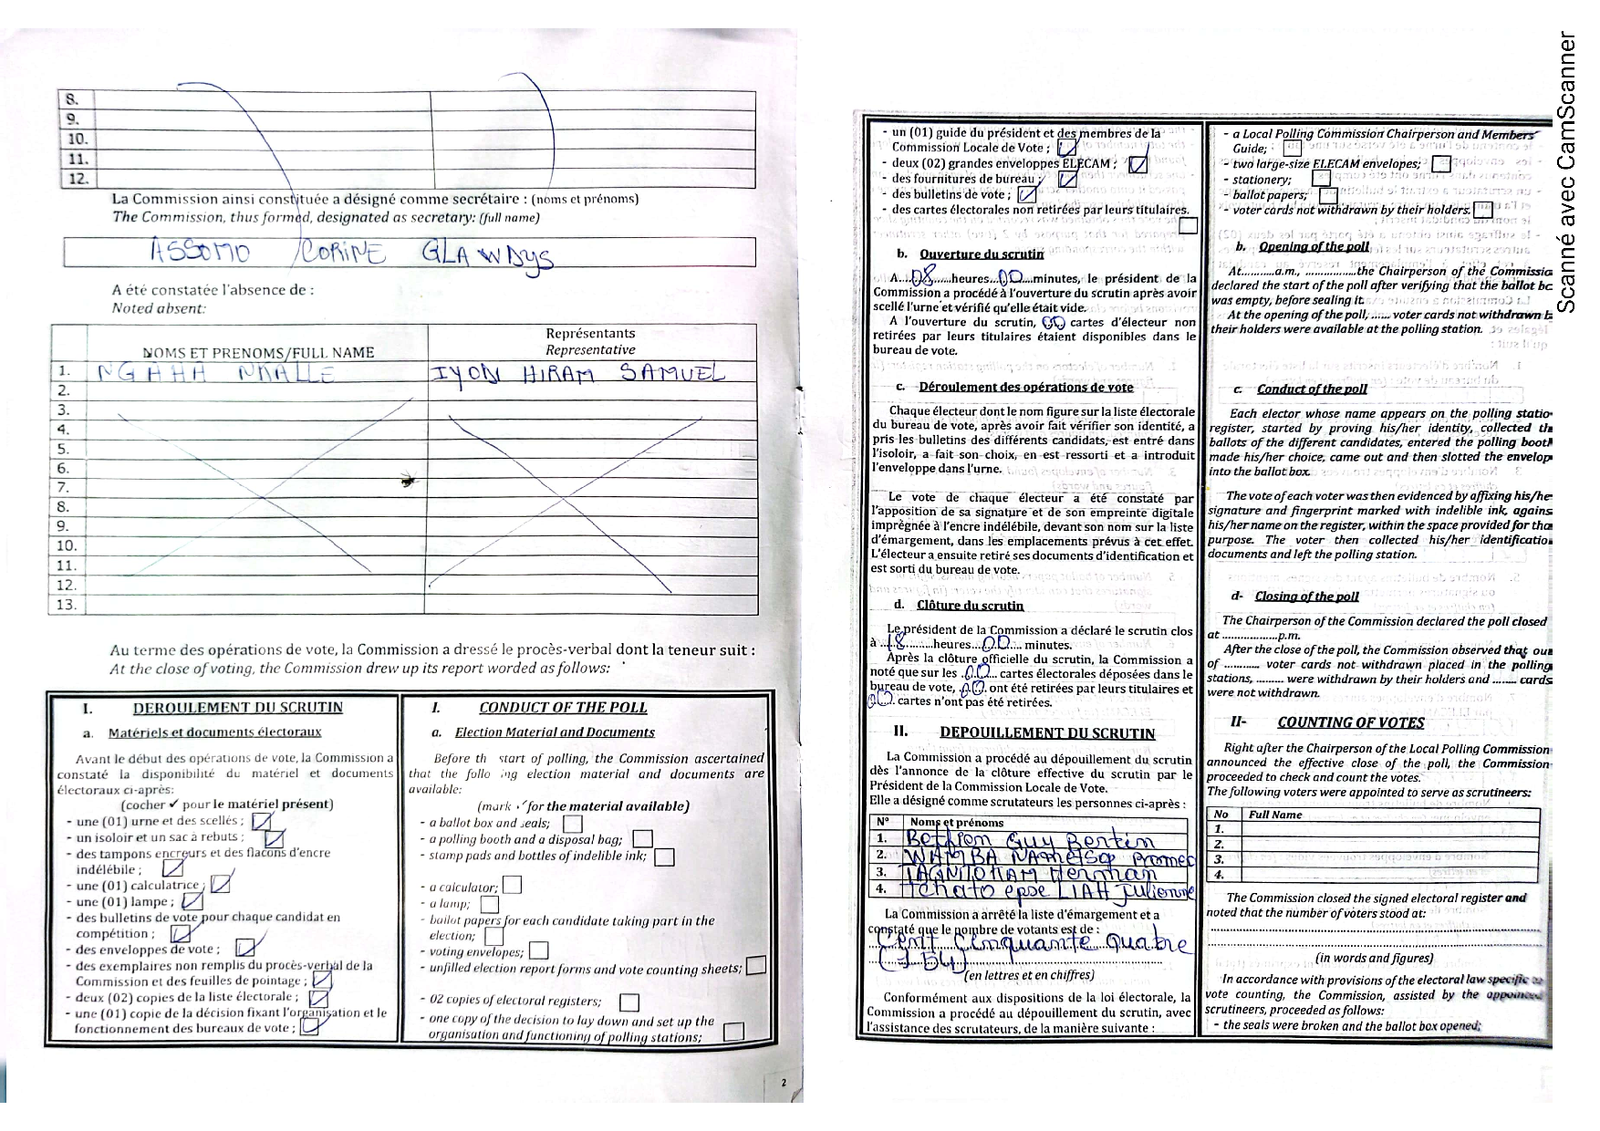 8.
9.
10.
11.
12.
La Commission ainsi constituée a désigné comme secrétaire : (noms et prénoms)
The Commission, thus formed, designated as secretary: (full name)
ASSOMO CORINE GLAWDYS
A été constatée l'absence de :
Noted absent:
NOMS ET PRENOMS/FULL NAME
Représentants
Representative
1. NGAHA NKALLE IYON HIRAM SAMUEL
2.
3.
4.
5.
6.
7.
8.
9.
10.
11.
12.
13.
Au terme des opérations de vote, la Commission a dressé le procès-verbal dont la teneur suit :
At the close of voting, the Commission drew up its report worded as follows:
I. DEROULEMENT DU SCRUTIN
a. Matériels et documents électoraux
Avant le début des opérations de vote, la Commission a
constaté la disponibilité du matériel et documents
électoraux ci-après:
(cocher ✓ pour le matériel présent)
- une (01) urne et des scellés ;
- un isoloir et un sac à rebuts ;
- des tampons encreurs et des flacons d'encre
indélébile ;
- une (01) calculatrice ;
- une (01) lampe ;
- des bulletins de vote pour chaque candidat en
compétition ;
- des enveloppes de vote ;
- des exemplaires non remplis du procès-verbal de la
Commission et des feuilles de pointage ;
- deux (02) copies de la liste électorale ;
- une (01) copie de la décision fixant l'organisation et le
fonctionnement des bureaux de vote ;
I. CONDUCT OF THE POLL
a. Election Material and Documents
Before th start of polling, the Commission ascertained
that the follo ing election material and documents are
available:
(mark ✓ for the material available)
- a ballot box and seals;
- a polling booth and a disposal bag;
- stamp pads and bottles of indelible ink;
- a calculator;
- a lamp;
- ballot papers for each candidate taking part in the
election;
- voting envelopes;
- unfilled election report forms and vote counting sheets;
- 02 copies of electoral registers;
- one copy of the decision to lay down and set up the
organisation and functioning of polling stations;
2
- un (01) guide du président et des membres de la
Commission Locale de Vote ;
- deux (02) grandes enveloppes ELECAM ;
- des fournitures de bureau ;
- des bulletins de vote ;
- des cartes électorales non retirées par leurs titulaires.
b. Ouverture du scrutin
A....08.....heures...00...minutes, le président de la
Commission a procédé à l'ouverture du scrutin après avoir
scellé l'urne et vérifié qu'elle était vide.
A l'ouverture du scrutin, 00 cartes d'électeur non
retirées par leurs titulaires étaient disponibles dans le
bureau de vote.
c. Déroulement des opérations de vote
Chaque électeur dont le nom figure sur la liste électorale
du bureau de vote, après avoir fait vérifier son identité, a
pris les bulletins des différents candidats, est entré dans
l'isoloir, a fait son choix, en est ressorti et a introduit
l'enveloppe dans l'urne.
Le vote de chaque électeur a été constaté par
l'apposition de sa signature et de son empreinte digitale
imprègnée à l'encre indélébile, devant son nom sur la liste
d'émargement, dans les emplacements prévus à cet effet.
L'électeur a ensuite retiré ses documents d'identification et
est sorti du bureau de vote.
d. Clôture du scrutin
Le président de la Commission a déclaré le scrutin clos
à ...18......heures...00... minutes.
Après la clôture officielle du scrutin, la Commission a
noté que sur les .00... cartes électorales déposées dans le
bureau de vote, .00. ont été retirées par leurs titulaires et
.00. cartes n'ont pas été retirées.
II. DEPOUILLEMENT DU SCRUTIN
La Commission a procédé au dépouillement du scrutin
dès l'annonce de la clôture effective du scrutin par le
Président de la Commission Locale de Vote.
Elle a désigné comme scrutateurs les personnes ci-après :
N° Noms et prénoms
1. Guy Bertin
2. WAMBA
3. Herman
4. Tchato epse Julienne
La Commission a arrêté la liste d'émargement et a
constaté que le nombre de votants est de :
Cent Cinquante quatre
(154)
(en lettres et en chiffres)
Conformément aux dispositions de la loi électorale, la
Commission a procédé au dépouillement du scrutin, avec
l'assistance des scrutateurs, de la manière suivante :
- a Local Polling Commission Chairperson and Members'
Guide;
- two large-size ELECAM envelopes;
- stationery;
- ballot papers;
- voter cards not withdrawn by their holders.
b. Opening of the poll
At..........a.m., ..................the Chairperson of the Commissio
declared the start of the poll after verifying that the ballot bo
was empty, before sealing it.
At the opening of the poll, ...... voter cards not withdrawn b
their holders were available at the polling station.
c. Conduct of the poll
Each elector whose name appears on the polling statio
register, started by proving his/her identity, collected th
ballots of the different candidates, entered the polling booth
made his/her choice, came out and then slotted the envelop
into the ballot box.
The vote of each voter was then evidenced by affixing his/he
signature and fingerprint marked with indelible ink, agains
his/her name on the register, within the space provided for tha
purpose. The voter then collected his/her identificatio
documents and left the polling station.
d- Closing of the poll
The Chairperson of the Commission declared the poll closed
at ................p.m.
After the close of the poll, the Commission observed that out
of ........... voter cards not withdrawn placed in the polling
stations, ......... were withdrawn by their holders and ........ cards
were not withdrawn.
II- COUNTING OF VOTES
Right after the Chairperson of the Local Polling Commission
announced the effective close of the poll, the Commission
proceeded to check and count the votes.
The following voters were appointed to serve as scrutineers:
No Full Name
1.
2.
3.
4.
The Commission closed the signed electoral register and
noted that the number of voters stood at:
(in words and figures)
In accordance with provisions of the electoral law specific to
vote counting, the Commission, assisted by the appointed
scrutineers, proceeded as follows:
- the seals were broken and the ballot box opened;
Scanné avec CamScanner